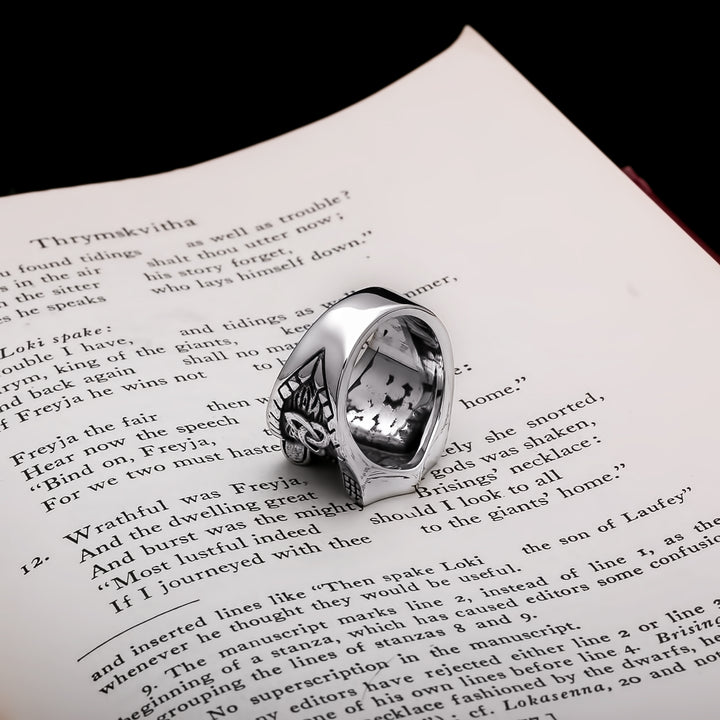 Thrymskvitha
found tidings as well as trouble?
in the air shalt thou utter now;
the sitter his story forget,
he speaks who lays himself down."
Loki spake:
I have, and tidings as
king of the giants,
back again shall no
Freyja he wins not to
Freyja the fair then home."
Hear now the speech
"Bind on, Freyja,
For we two must haste
12. Wrathful was Freyja, she snorted,
And the dwelling great gods was shaken,
And burst was the mighty Brisings' necklace:
"Most lustful indeed should I look to all
If I journeyed with thee to the giants' home."
and inserted lines like "Then spake Loki the son of Laufey"
whenever he thought they would be useful.
9. The manuscript marks line 2, instead of line 1, as the
beginning of a stanza, which has caused editors some
grouping the lines of stanzas 8 and 9.
No superscription in the manuscript.
editors have rejected either line 2 or line
of his own lines before line 4.
necklace fashioned by the dwarfs,
cf. Lokasenna, 20 and